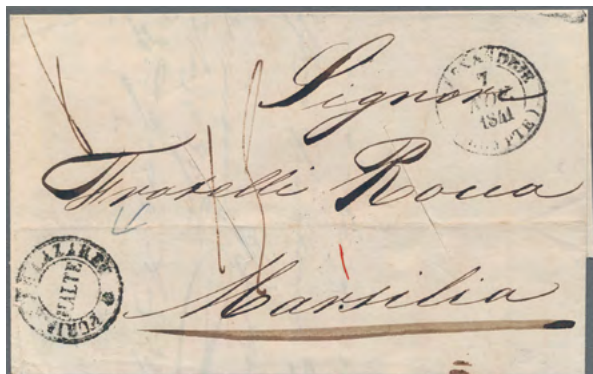 Signori
ALEXANDRIE
7
NOV
1841
(EGYPTE)
Fratelli Rocca
PURIFIÉ AU LAZARET
MALTE
Marsilia